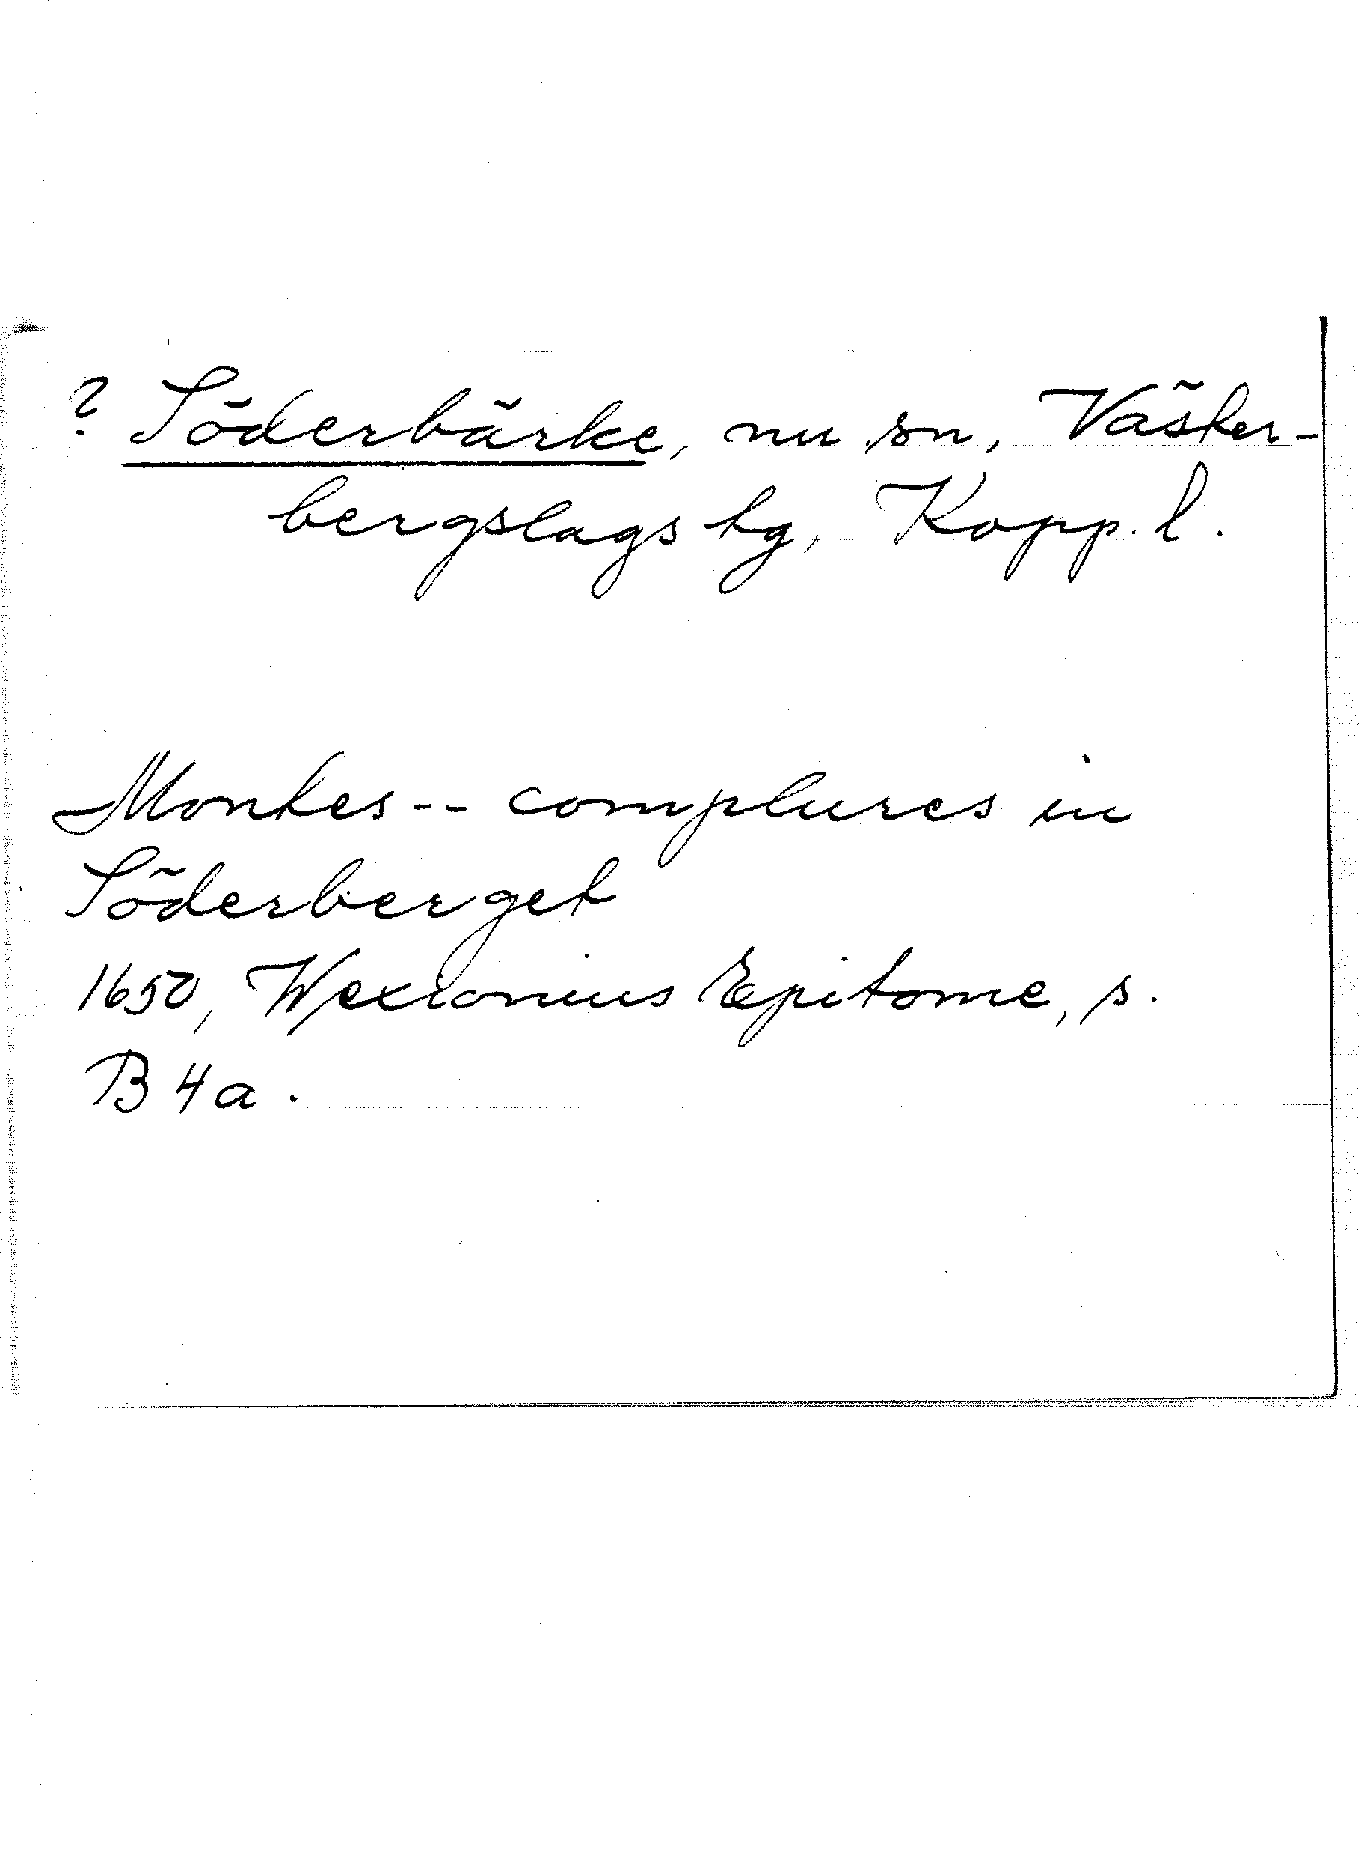 ? Söderbärke, nu sn, Väster-
bergslags tg, Kopp. l.
Montes -- complures in
Söderberget
1650, Wexionius Epitome, s.
B 4a.